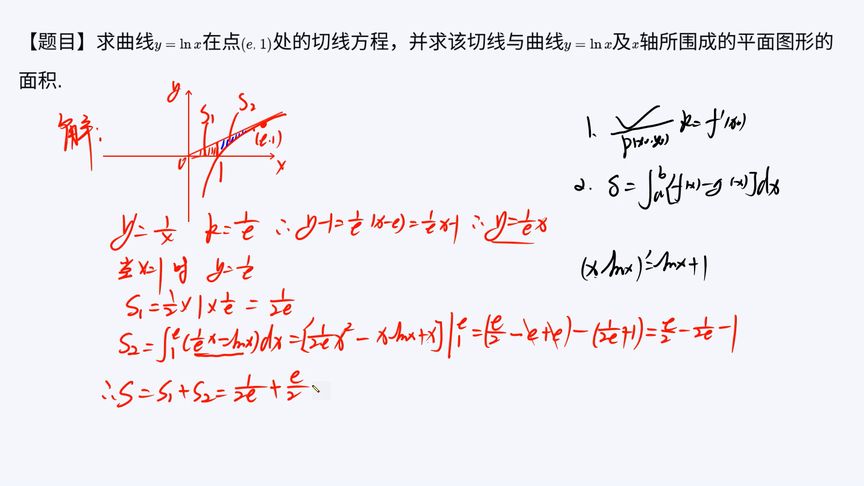 【题目】求曲线y=ln x在点(e,1)处的切线方程，并求该切线与曲线y=ln x及x轴所围成的平面图形的
面积.
解:
y
S₁
S₂
(e,1)
0
1
x
y'=1/x k=1/e ∴y-1=1/e(x-e)=1/e x-1 ∴y=1/e x
当x=1时 y=1/e
S₁=1/2×1×1/e=1/2e
S₂=∫₁ᵉ(1/e x-lnx)dx=[1/2e x²-xlnx+x]|₁ᵉ=(e/2-e+e)-(1/2e+1)=e/2-1/2e-1
∴S=S₁+S₂=1/2e+e/2
1. P(x₀,y₀) k=f'(x₀)
2. S=∫ₐᵇ[f(x)-g(x)]dx
(xlnx)'=lnx+1